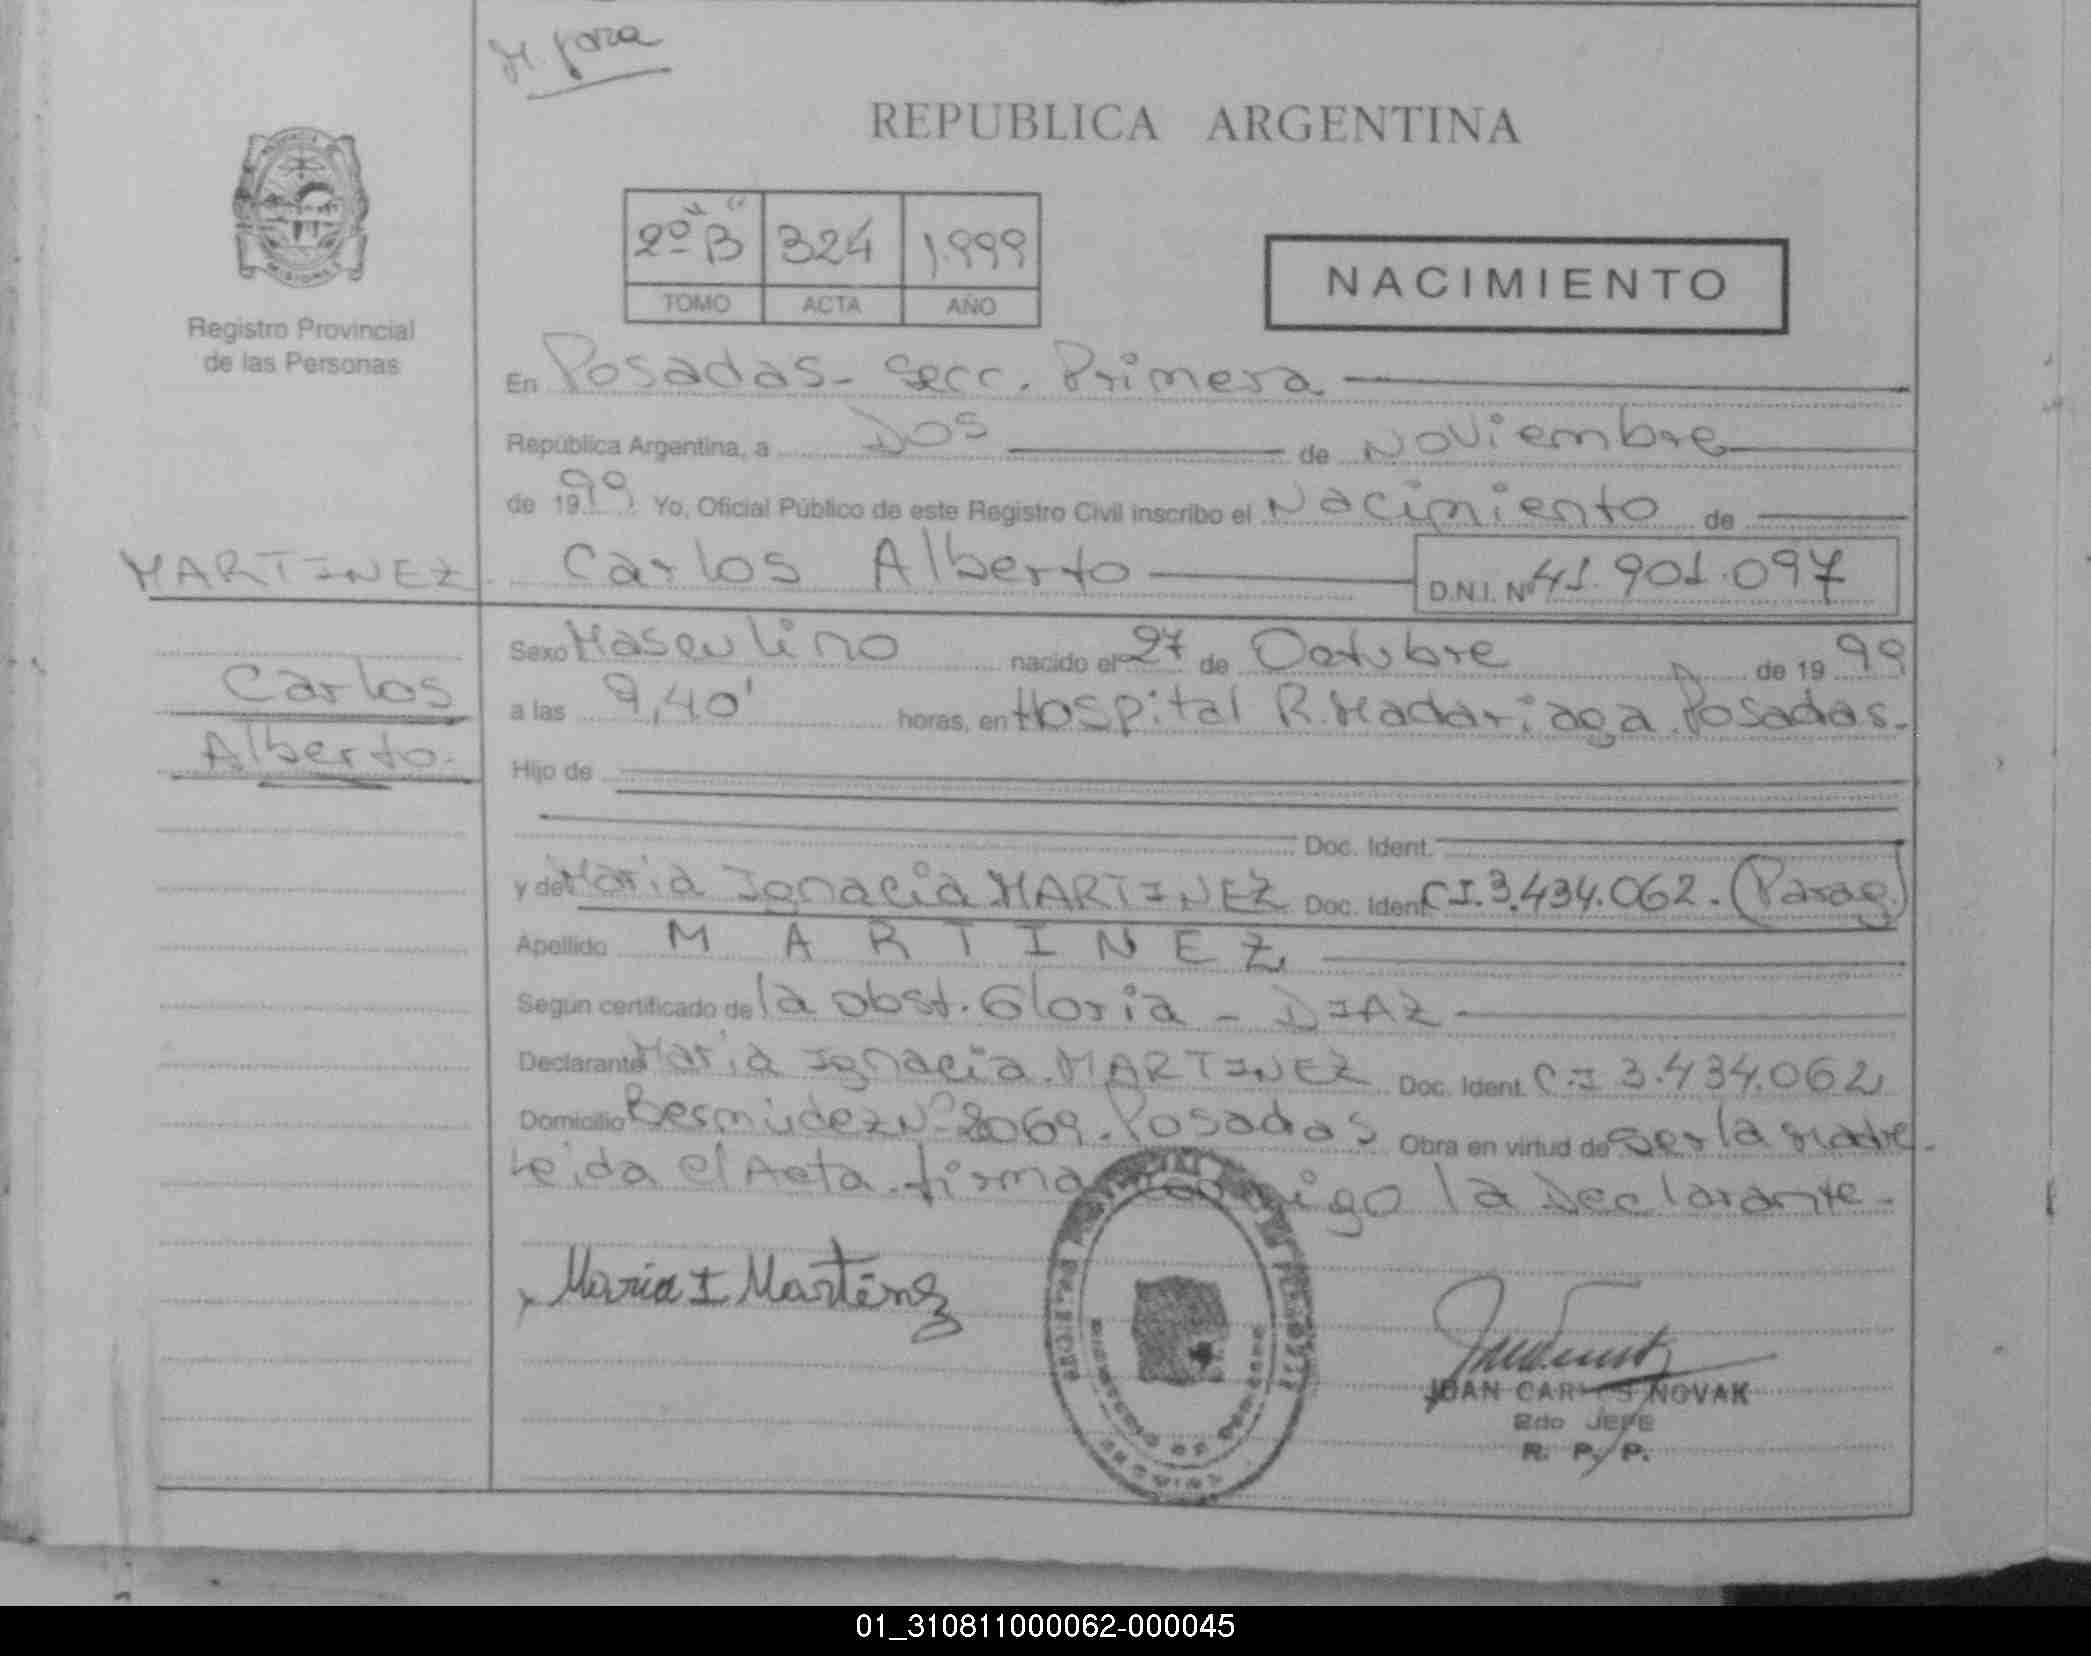 REPUBLICA ARGENTINA
2º "B" 324 1.999
TOMO ACTA AÑO
NACIMIENTO
Registro Provincial
de las Personas
En Posadas - Secc. Primera
República Argentina, a Dos de Noviembre
de 1999 Yo, Oficial Público de este Registro Civil inscribo el Nacimiento de
MARTINEZ Carlos Alberto D.N.I. Nº 41.901.097
Sexo Masculino nacido el 27 de Octubre de 1999
Carlos
a las 9,40' horas, en Hospital R. Madariaga. Posadas.
Alberto.
Hijo de
Doc. Ident.
y de Maria Ignacia MARTINEZ Doc. Ident. C.I. 3.434.062. (Parag.)
Apellido MARTINEZ
Según certificado de la obst. Gloria - DIAZ
Declarante Maria Ignacia MARTINEZ Doc. Ident. C.I 3.434.062
Domicilio Bermúdez Nº 2069. Posadas Obra en virtud de ser la Madre.
Leida el Acta. firma conmigo la Declarante.
Maria I Martínez
JUAN CARLOS NOVAK
2do JEFE
R. P. P.
01_310811000062-000045